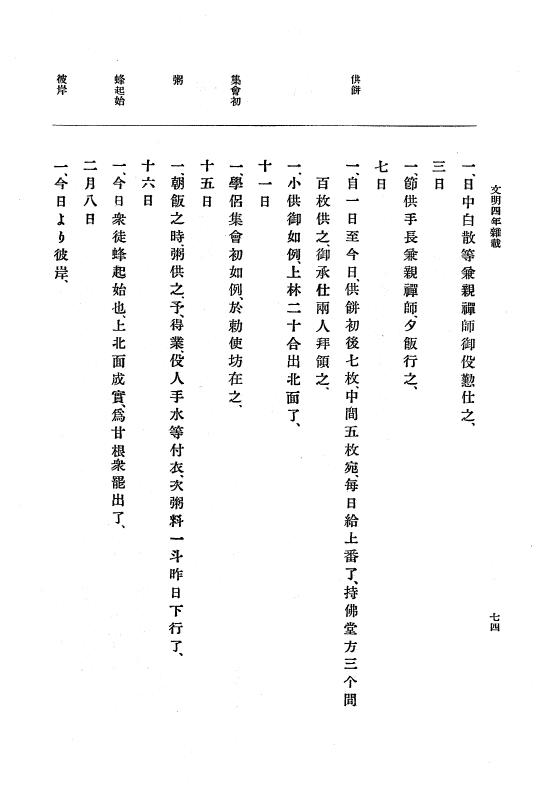 文明四年雜載
七四
一、日中白散等兼親禪師御役勤仕之、
三日
一、節供手長兼親禪師、夕飯行之、
七日
供餅
一、自一日至今日、供餅初後七枚、中間五枚宛、每日給上番了、持佛堂方三个間
百枚供之、御承仕兩人拜領之、
一、小供御如例、上林二十合出北面了、
十一日
集會初
一、學侶集會初如例、於勅使坊在之、
十五日
粥
一、朝飯之時、粥供之、予、得業役人手水等付衣、次粥料一斗昨日下行了、
十六日
蜂起始
一、今日衆徒蜂起始也、上北面成實、爲甘根衆罷出了、
二月八日
彼岸
一、今日より彼岸、